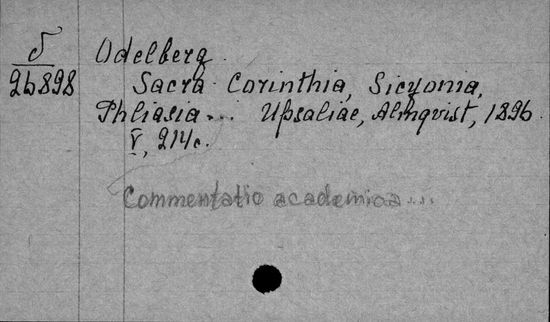 б Odelberg.
26898 Sacra Corinthia, Sicyonia,
Phliasia... Upsaliae, Almqvist, 1896
V, 214 c.
Commentatio academica...